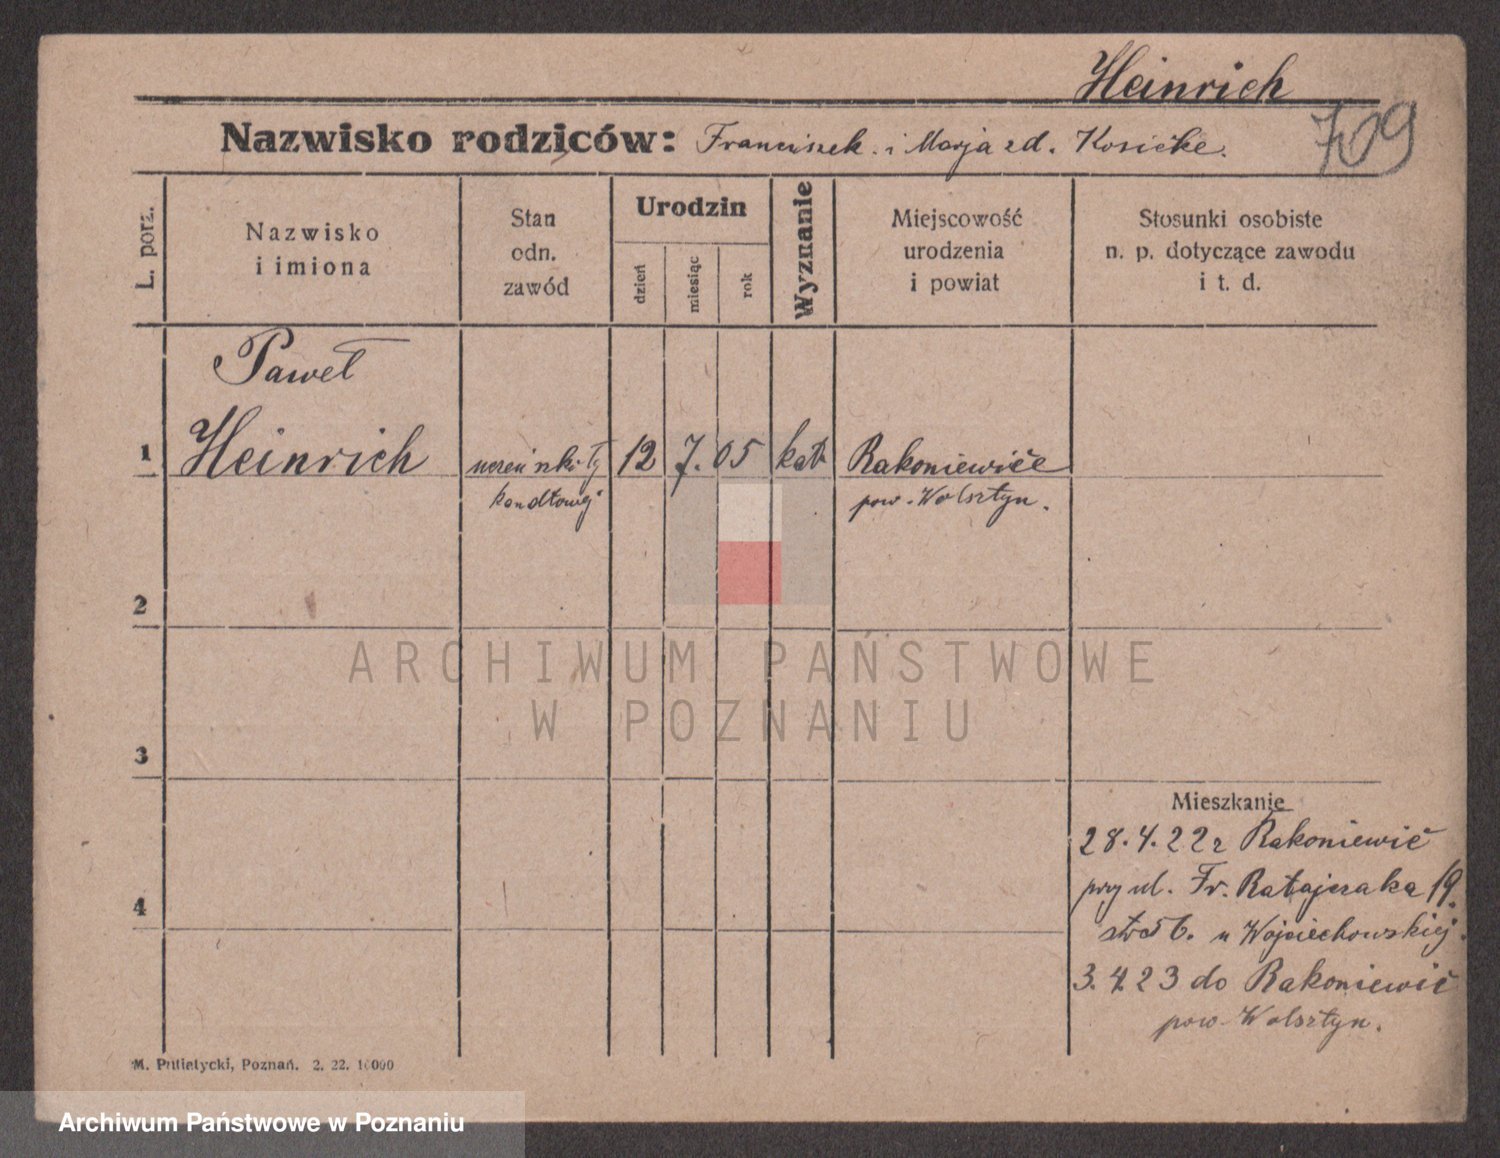 Heinrich
709
Nazwisko rodziców: Franciszek i Marja zd. Kosicke.
L. porz.
Nazwisko
i imiona
Stan
odn.
zawód
Urodzin
dzień
miesiąc
rok
Wyznanie
Miejscowość
urodzenia
i powiat
Stosunki osobiste
n. p. dotyczące zawodu
i t. d.
Paweł
1 Heinrich uczeń szkoły 12 7. 05 kat. Rakoniewice
handlowej pow. Wolsztyn.
2
ARCHIWUM PAŃSTWOWE
W POZNANIU
3
Mieszkanie
28.4.22 z Rakoniewic
przy ul. Fr. Ratajczaka 19.
u Wojciechowskiej.
4
3.4.23 do Rakoniewic
pow. Wolsztyn.
M. Putiatycki, Poznań. 2. 22. 10000
Archiwum Państwowe w Poznaniu